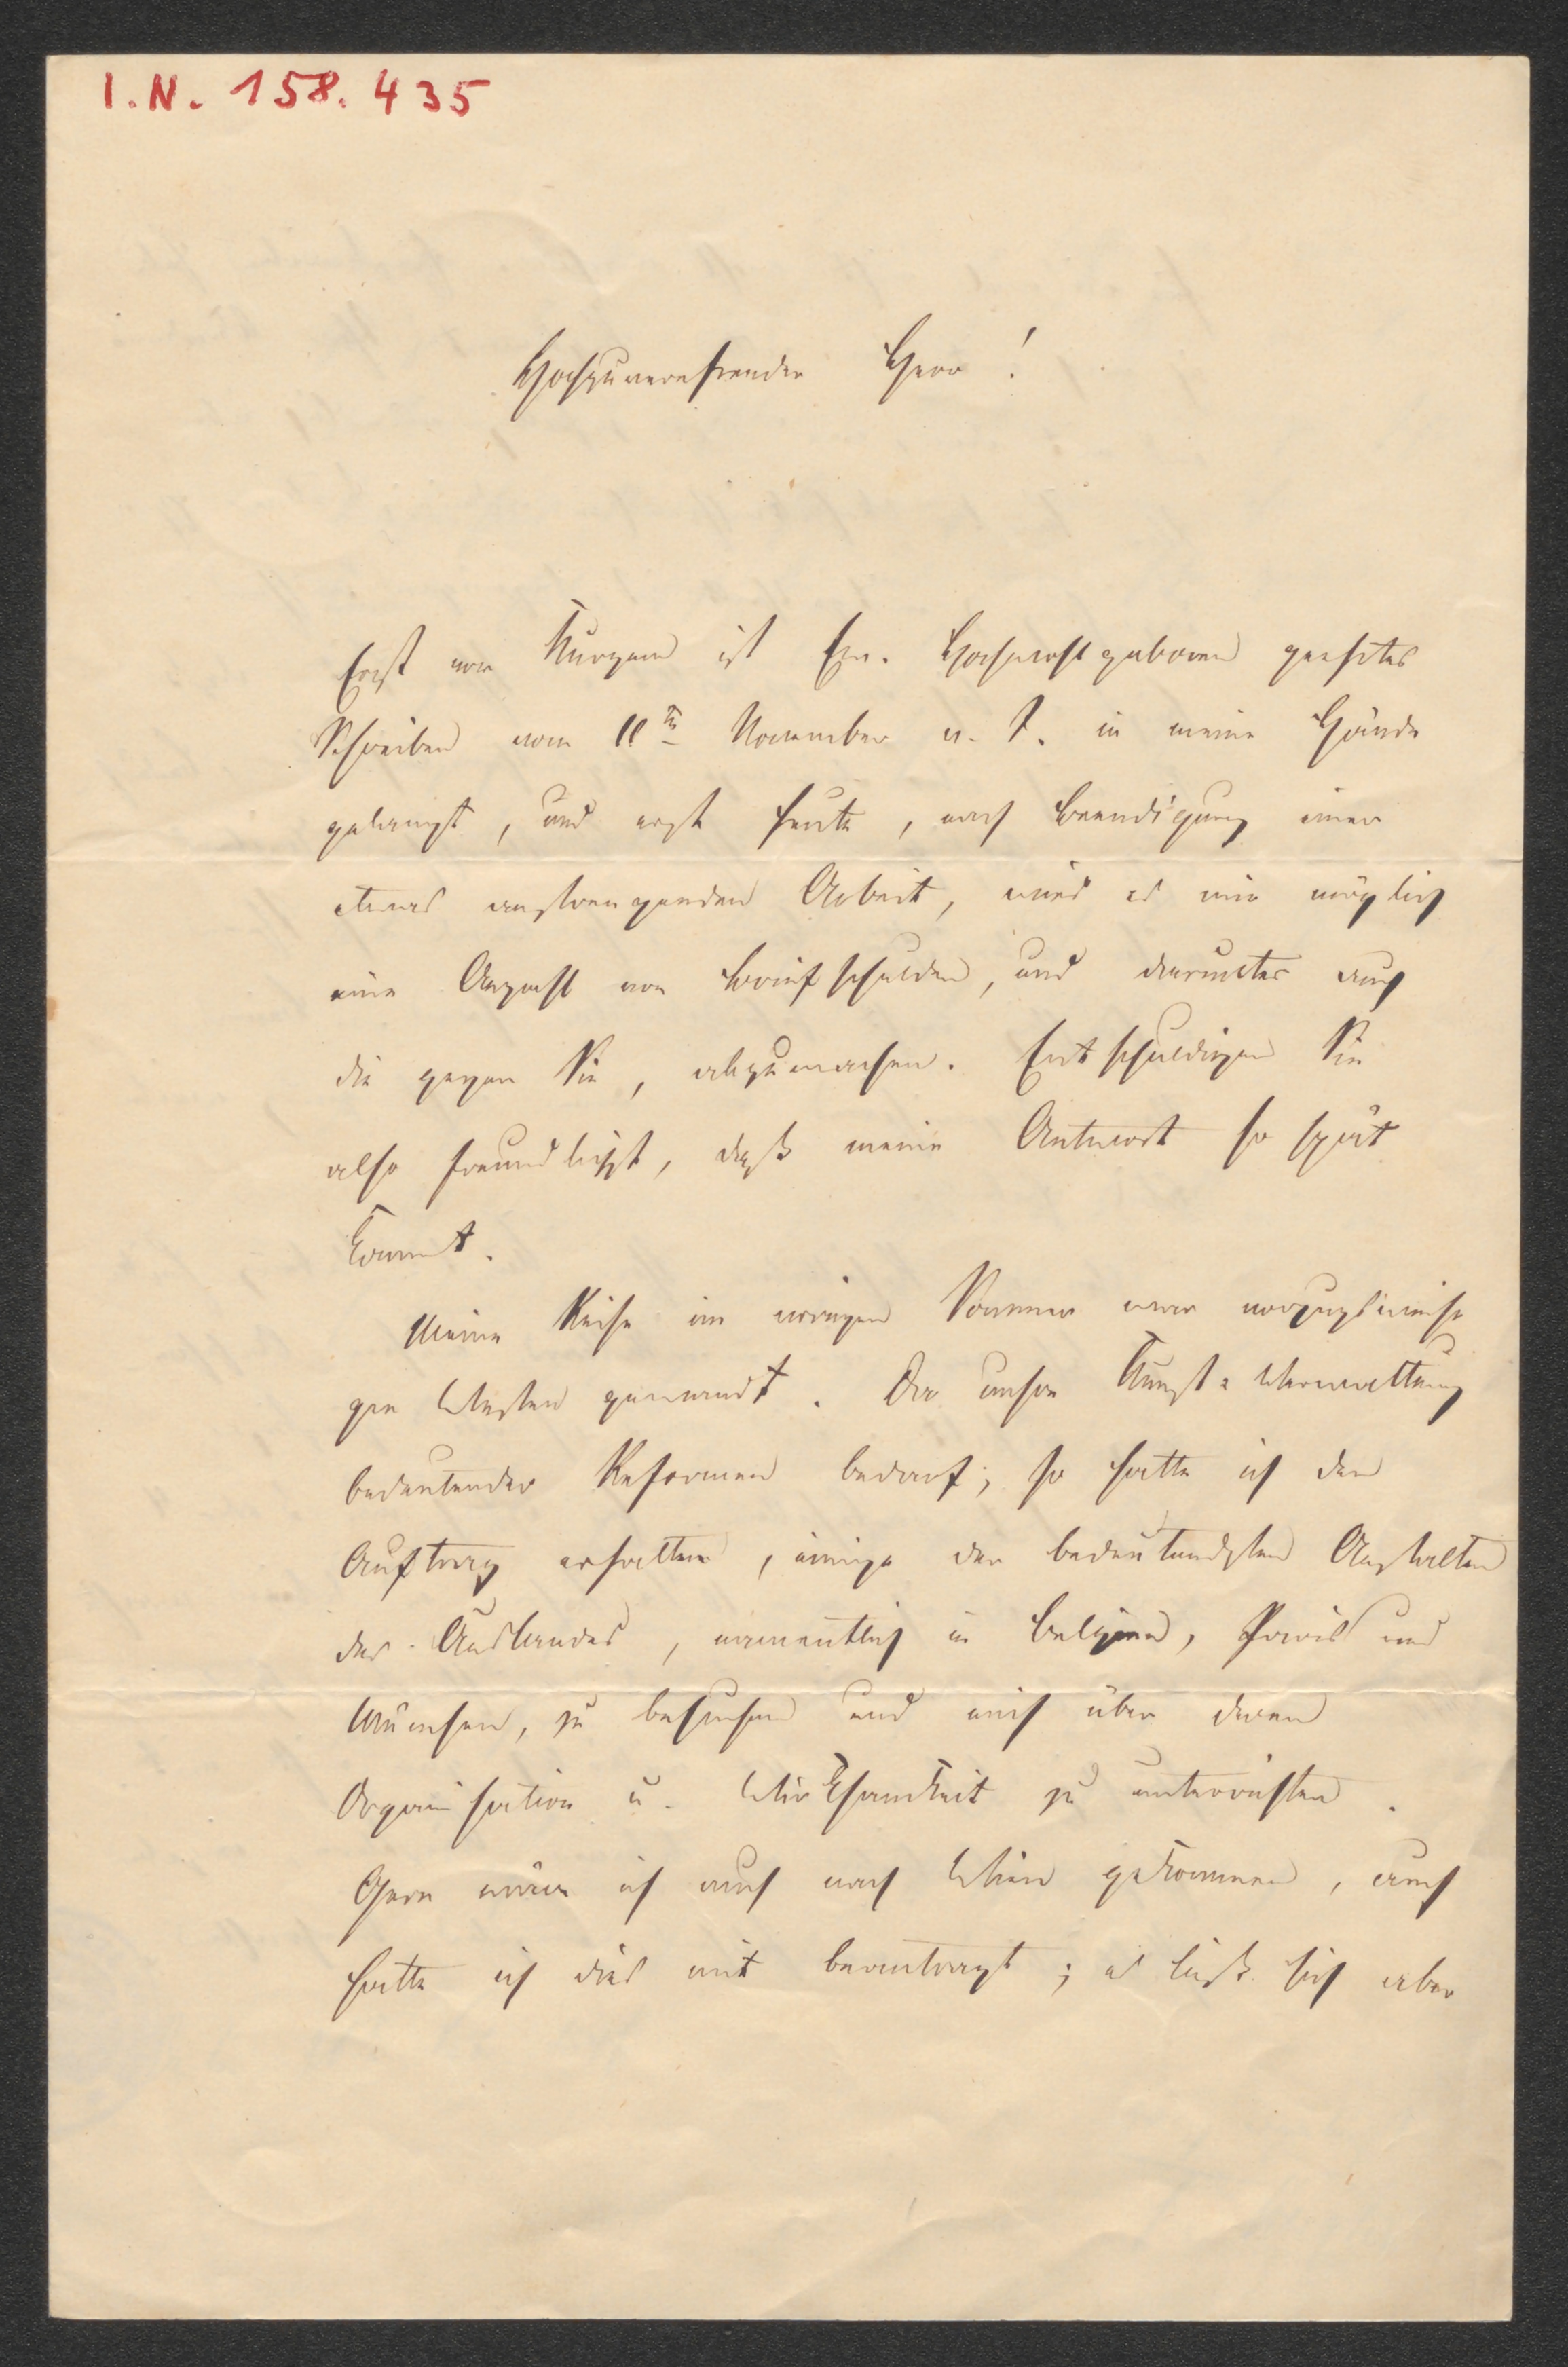 I.N. 158.435
Hochzuverehrender Herr!
Erst vor Kurzem ist Ew. Hochwohlgeboren geehrtes
Schreiben vom 11ten November v. J. in meine Hände
gelangt, und erst heute, nach Beendigung einer
etwas anstrengenden Arbeit, wird es mir möglich
eine Anzahl von Briefschulden, und darunter auch
die gegen Sie, abzumachen. Entschuldigen Sie
also freundlichst, daß meine Antwort so spät
kommt.
Meine Reise im vorigen Sommer war vorzugsweise
gen Westen gewandt. Da unsre Kunst-Verwaltung
bedeutender Reformen bedarf, so hatte ich den
Auftrag erhalten, einige der bedeutendsten Anstalten
des Auslandes, namentlich in Belgien, Paris und
München, zu besuchen und mich über deren
Organisation u. Wirksamkeit zu unterrichten.
Gern wäre ich auch nach Wien gekommen, auch
hatte ich dies mit beantragt; es ließ sich aber